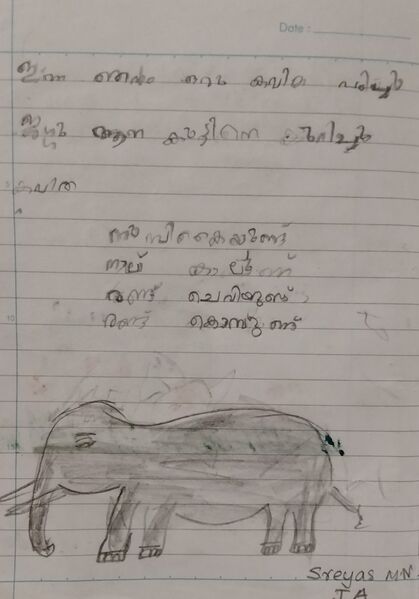 Date :
ഇന്ന ഞങ്ങൾ ഒരു കവിത പഠിച്ചു
ജഗ്ഗു ആന കുട്ടിനെ കുറിച്ചു
കവിത
തുമ്പികൈയുണ്ട്
നാല് കാലുണ്ട്
രണ്ട് ചെവിയുണ്ട്
രണ്ട് കൊമ്പുണ്ട്
Sreyas M.N.
I A